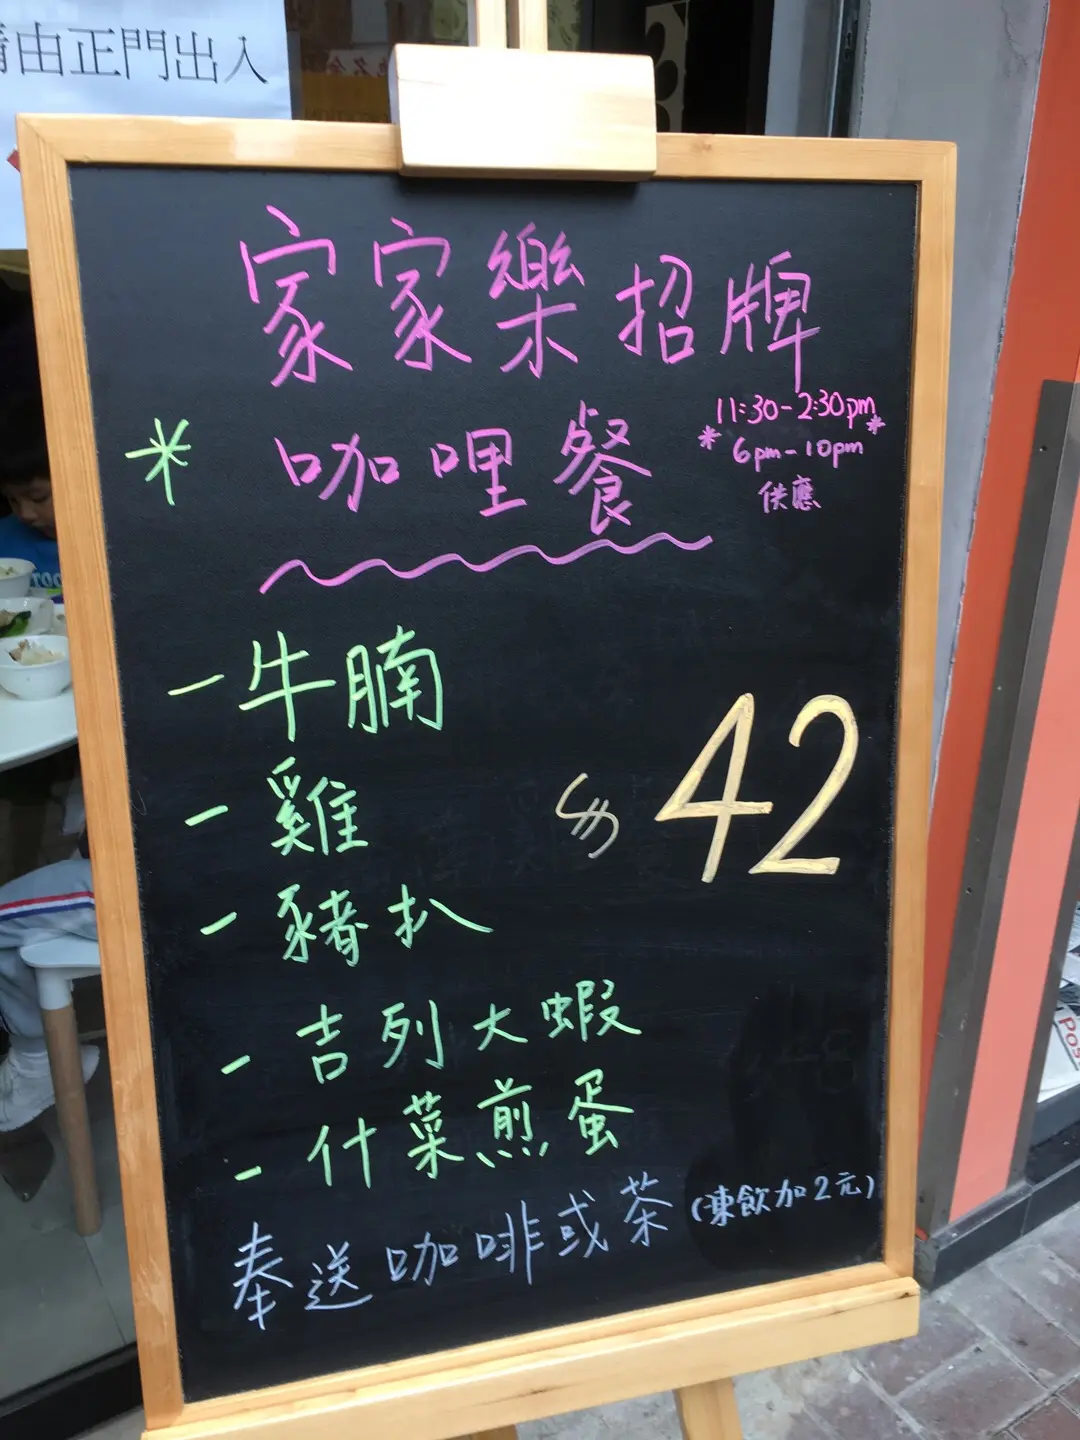 請由正門出入
家家樂招牌
* 咖哩餐
11:30-2:30pm
* 6pm-10pm *
供應
- 牛腩
- 雞
- 豬扒
- 吉列大蝦
- 什菜煎蛋
$ 42
奉送咖啡或茶 (凍飲加2元)
Pos